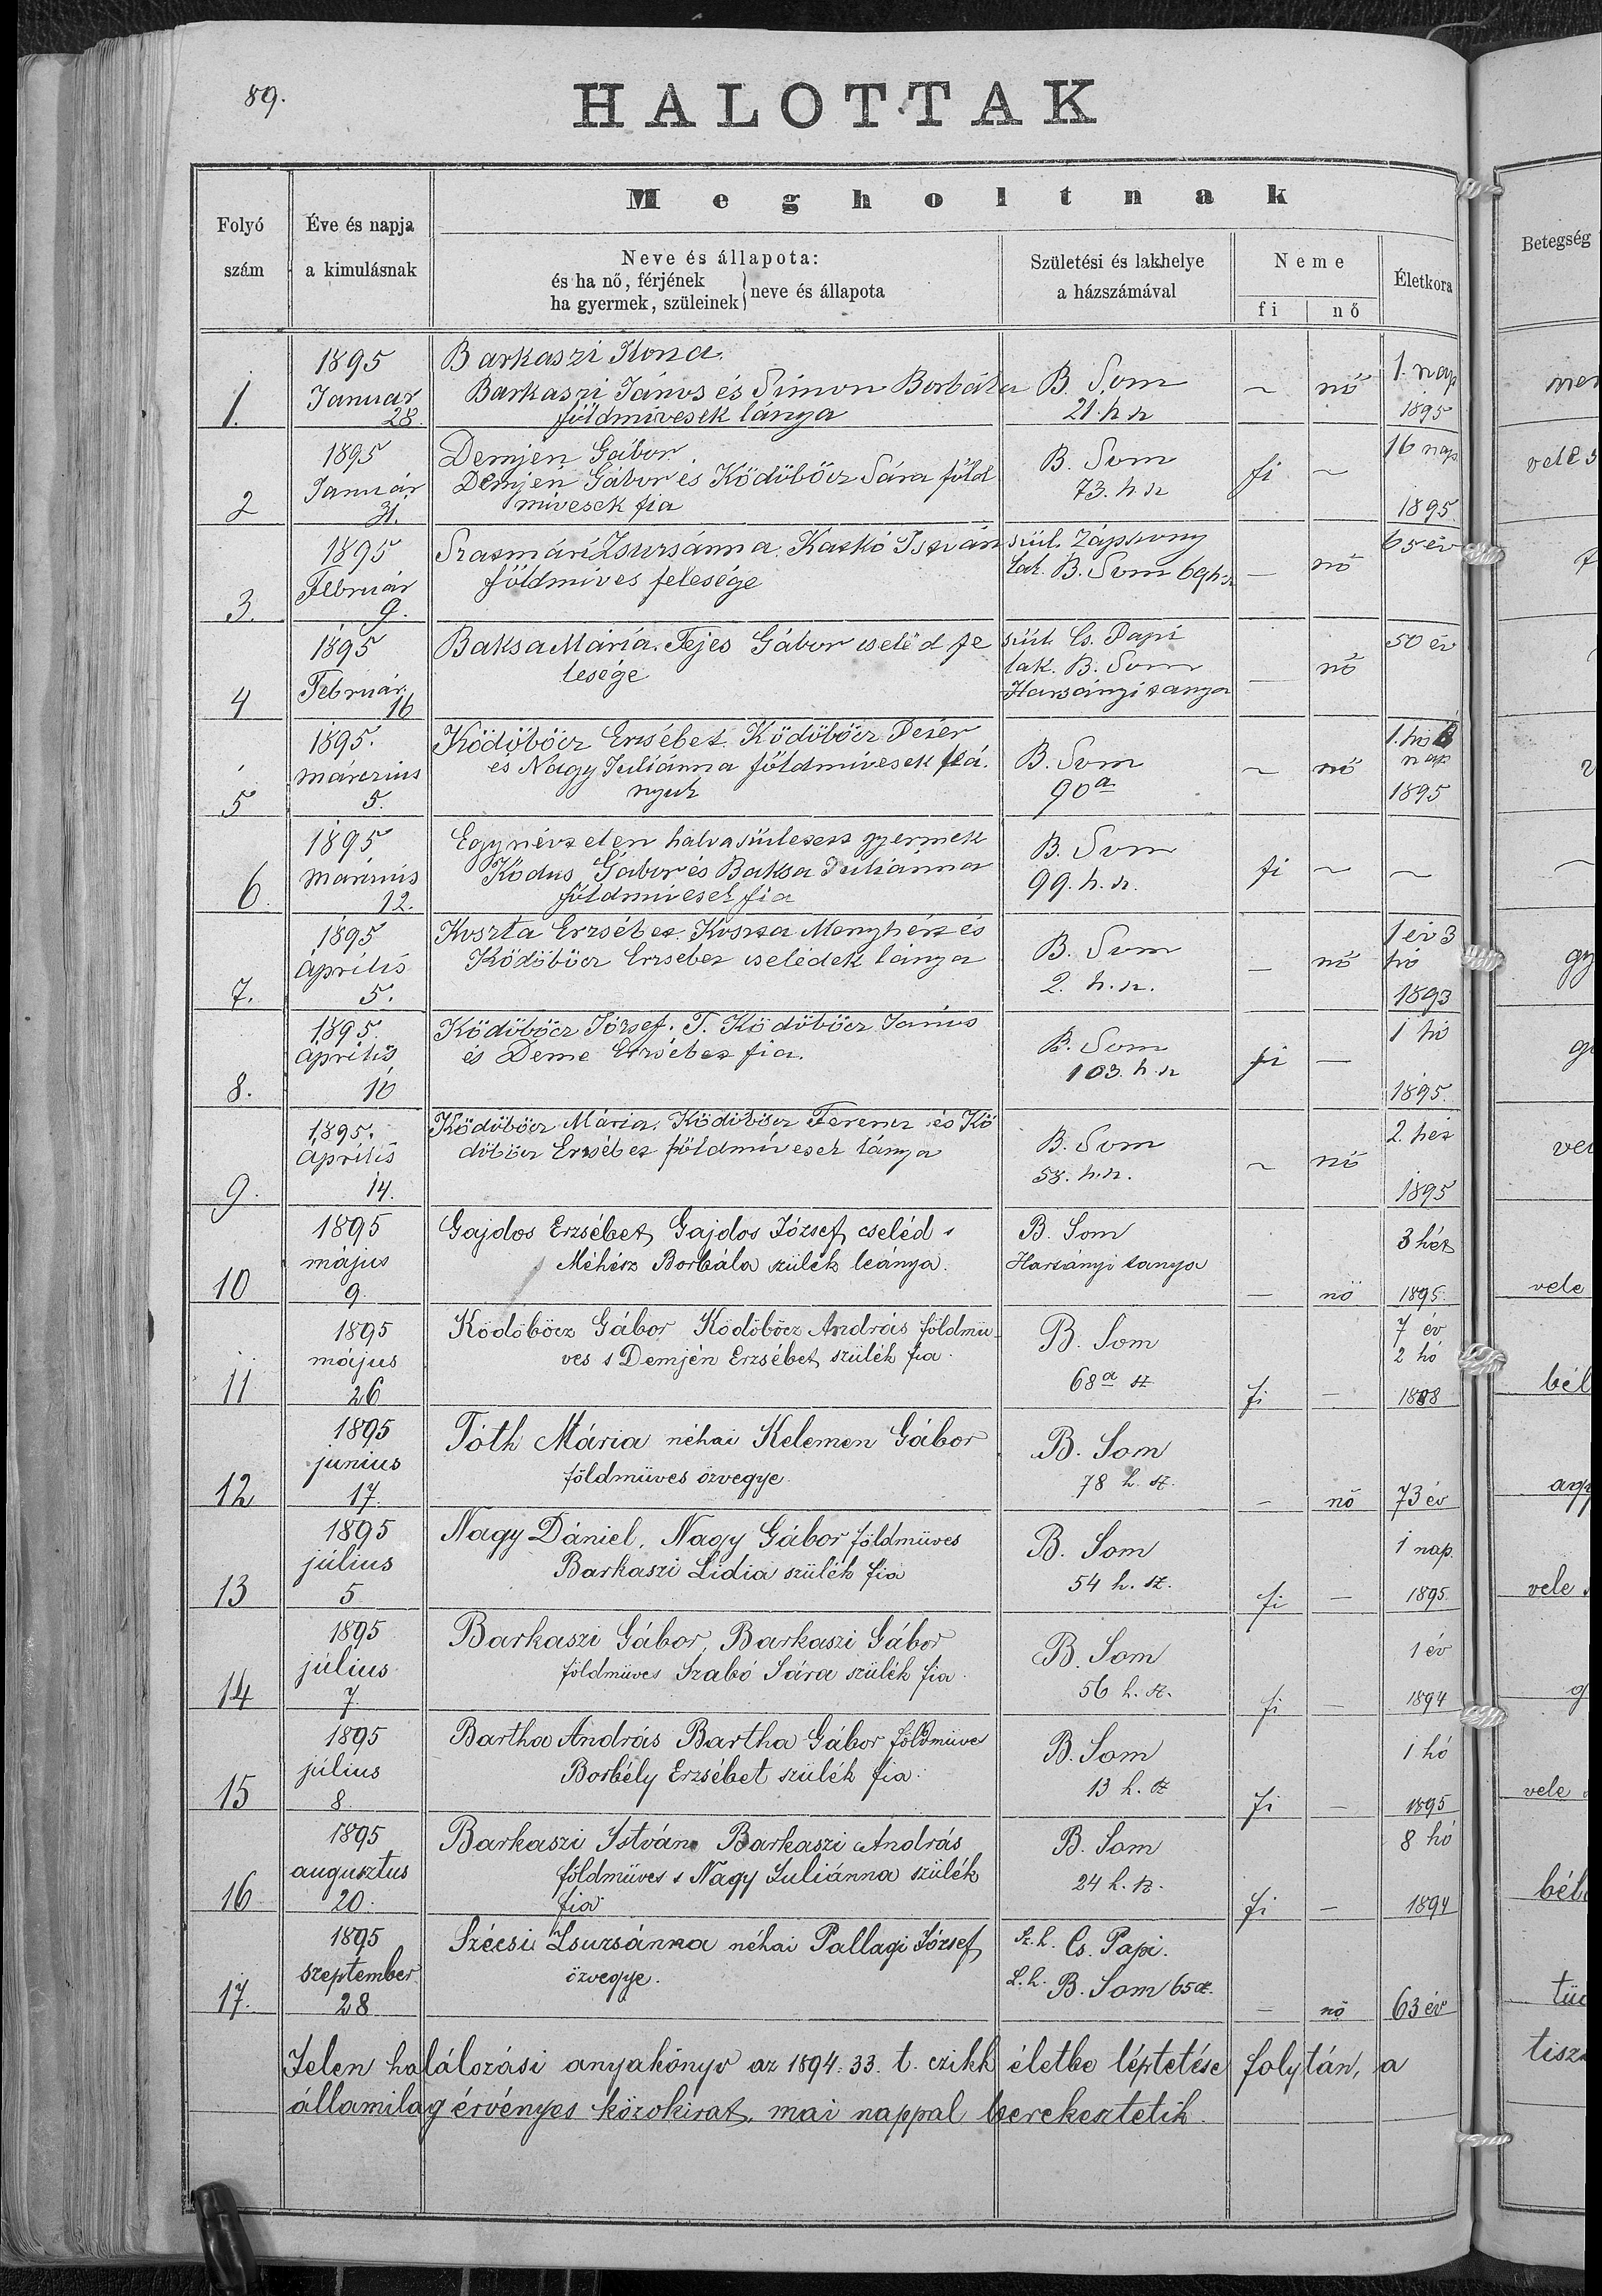 89.
HALOTTAK
Folyó szám
Éve és napja a kimulásnak
Megholtnak
Neve és állapota:
és ha nő, férjének
ha gyermek, szüleinek } neve és állapota
Születési és lakhelye a házszámával
Neme
fi nő
Életkora
Betegség
1. 1895 Január 28. Barkaszi Ilona. B. Som ~ nő 1. nap
Barkaszi János és Simon Borbála 21. h sz 1895
földmívesek lánya
2 1895 Január 31. Demjén Gábor. B. Som fi ~ 16 nap
Demjén Gábor és Ködöböcz Sára föld 73. h. sz 1895.
mívesek fia
3. 1895 Február 9. Szatmári Zsuzsánna. Kaskó István szül. Zápszony — nő 65 év
földmíves felesége Lak. B. Som 69 h. sz
4 1895 Február. 16 Baksa Mária. Fejes Gábor cseléd fe szül. Cs. Papi — nő 50 év
lesége lak. B. Som
Harsányi tanya
5 1895. márczius 5. Ködöböcz Erzsébet. Ködöböcz Péter B. Som ~ nő 1. hó
és Nagy Juliánna földmívesek leá. 90a nap
nyuk 1895
6. 1895 márczius 12. Egy névtelen halva született gyermek B. Som fi ~ ~
Kodus Gábor és Baksa Juliánna 99. h. sz.
földmívesek fia
7. 1895 április 5. Koszta Erzsébet. Koszta Menyhért és B. Som — nő 1 év 3 hó
Ködöböcz Erzsébet cselédek lánya 2. h. sz. 1893
8. 1895. április 10 Ködöböcz József. T. Ködöböcz János B. Som fi — 1 hó
és Deme Erzsébet fia. 103. h. sz 1895.
9. 1895. április 14. Ködöböcz Mária. Ködöböcz Ferencz és Kö B. Som ~ nő 2. hét
döböcz Erzsébet földmívesek lánya 58. h. sz. 1895
10 1895 május 9. Gajdos Erzsébet, Gajdos József cseléd s B. Som — nő 3 hét
Méhész Borbála szülék leánya. Harsányi tanya 1895.
11 1895 május 26 Ködöböcz Gábor Ködöböcz András földmű- B. Som fi — 7 év 2 hó
ves s Demjén Erzsébet szülék fia. 68a sz 1888
12 1895 június 17. Tóth Mária néhai Kelemen Gábor B. Som – nő 73 év
földmüves özvegye. 78 h. sz.
13 1895 július 5 Nagy Dániel, Nagy Gábor földmüves B. Som fi — 1 nap.
Barkaszi Lidia szülék fia 54 h. sz. 1895.
14 1895 július 7. Barkaszi Gábor, Barkaszi Gábor B. Som fi — 1 év
földmüves Szabó Sára szülék fia. 56 h. sz. 1894
15 1895 július 8. Bartha András Bartha Gábor földmüves B. Som fi — 1 hó
Borbély Erzsébet szülék fia. 13 h. sz 1895
16 1895 augusztus 20. Barkaszi István Barkaszi András B. Som fi — 8 hó
földmüves s Nagy Juliánna szülék 24 h. sz. 1894
fia
17. 1895 szeptember 28 Szécsi Zsuzsánna néhai Pallagi József Sz. h. Cs. Papi. — nő 63 év
özvegye. L. h. B. Som 65 sz.
Jelen halálozási anyakönyv az 1894. 33. t. czikk életbe léptetése folytán, a
államilag érvényes közokirat, mai nappal berekesztetik.